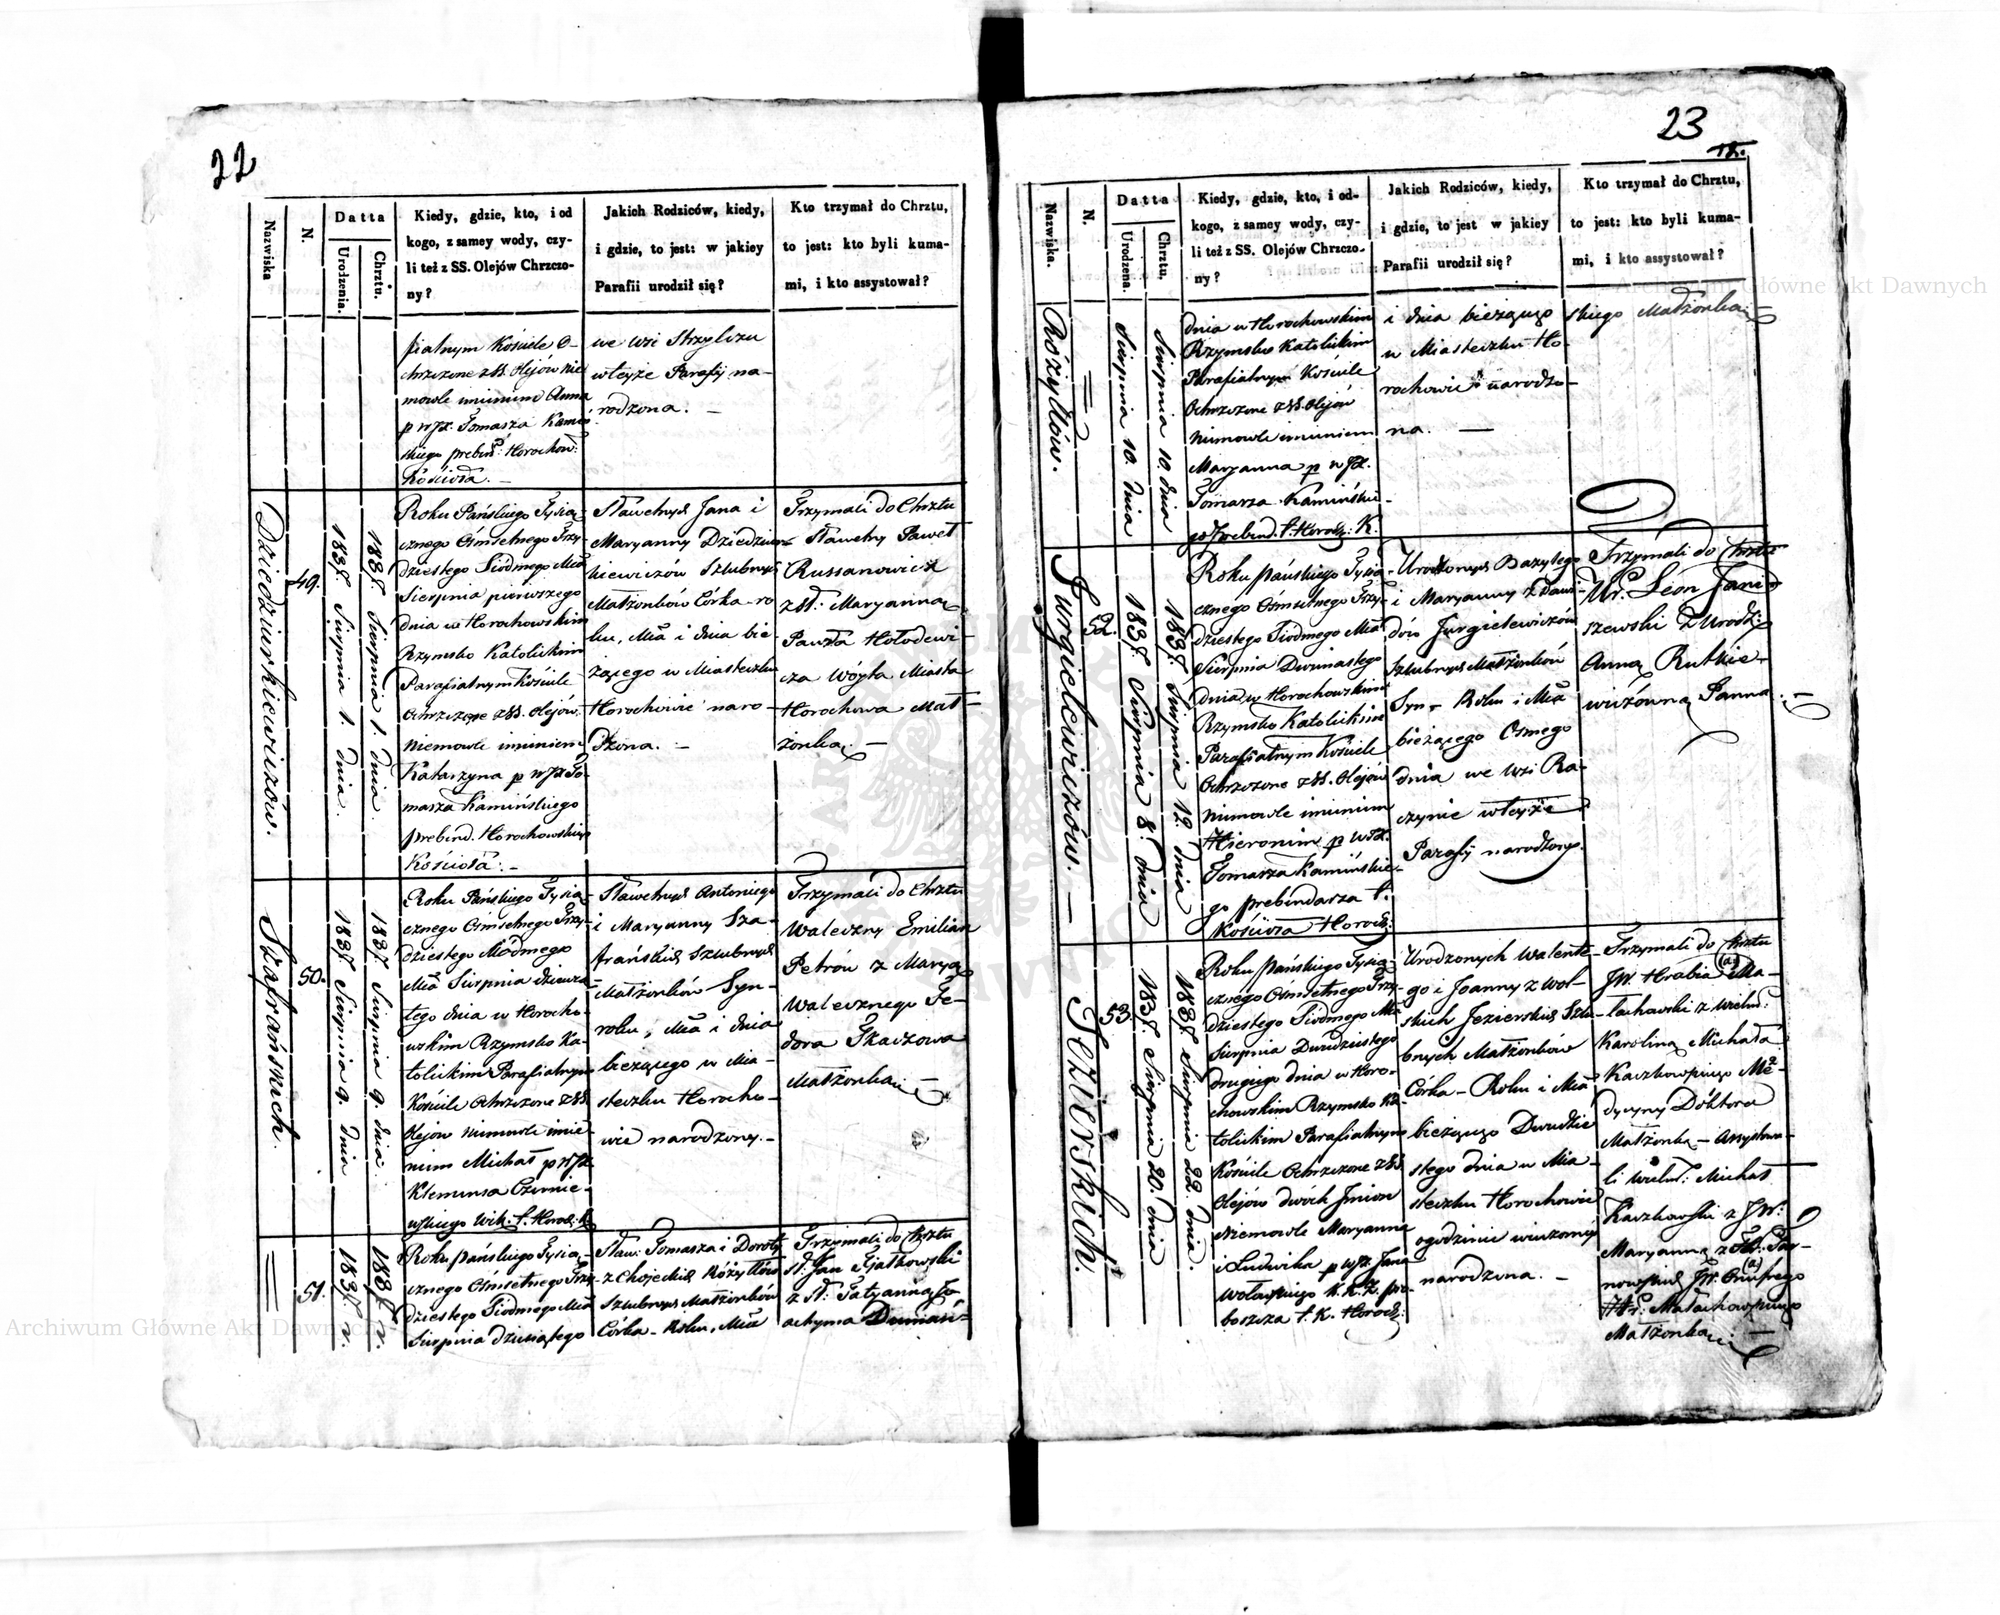 22
Nazwiska
N.
Datta
Urodzenia.
Chrztu.
Kiedy, gdzie, kto, i od
kogo, z samey wody, czy-
li też z SS. Olejów Chrzczo-
ny?
Jakich Rodziców, kiedy,
i gdzie, to jest: w jakiey
Parafii urodził się?
Kto trzymał do Chrztu,
to jest: kto byli kuma-
mi, i kto assystował?
fialnym Kościele O-
chrzczone z SS. Olejów nie
mowle imieniem Anna
p WJX. Tomasza Kamiń
skiego prebend: Horochow:
Kościoła. -
we wsi Strzelczu
wteyże Parafij na-
rodzona. -
Dziedziurkiewiczów.
49.
1837. Sierpnia 1. dnia.
1837. Sierpnia 1. dnia
Roku Pańskiego Tysią
cznego Ośmsetnego Trzy
dziestego Siodmego Mca
Sierpnia pierwszego
dnia w Horochowskim
Rzymsko Katolickim
Parafialnym Kościele
Ochrzczone z SS. Olejów
niemowle imieniem
Katarzyna p WJX To-
masza Kamińskiego
prebend. Horochowskiego
Kościoła: -
Sławetnych Jana i
Maryanny Dziedziur-
kiewiczów Szlubnych
Małżonków Córka - ro
ku, Mca i dnia bie-
żącego w Miasteczku
Horochowie naro-
dzona. -
Trzymali do Chrztu
Sławetny Paweł
Russanowicz
z Sł: Maryanną
Pawła Hołodewi-
cza Wóyta Miasta
Horochowa Mał-
żonką. -
Szafrańskich.
50.
1837. Sierpnia 9. dnia
1837. Sierpnia 9. dnia.
Roku Pańskiego Tysią-
cznego Ośmsetnego Trzy-
dziestego Siódmego
Mca Sierpnia dziewią-
tego dnia w Horocho-
wskim Rzymsko Ka-
tolickim Parafialnym
Kościele Ochrzczone z SS.
Olejów niemowle imie-
niem Michał p WJX
Klemensa Czernie-
wskiego Wik. f. Horoch: K.
Sławetnych Antoniego
i Maryanny Sza-
frańskich Szlubnych
Małżonków Syn -
roku, Mca i dnia
bieżącego w Mia-
steczku Horocho-
wie narodzony. -
Trzymali do Chrztu
Waleczny Emilian
Petrów z Maryą
Walecznego Te-
dora Tkaczowa
Małżonką. -
51.
1837. r.
1837. r.
Roku Pańskiego Tysią-
cznego Ośmsetnego Trzy
dziestego Siodmego Mca
Sierpnia dziesiątego
Sław: Tomasza i Doroty
z Chojeckich Różyłłów
Szlubnych Małżonków
Córka - Roku, Mca
Trzymali do Chrztu
Sł. Jan
z Sł: Tatyanną Jo
achyma
23
18.
Nazwiska.
N.
Datta
Urodzena.
Chrztu.
Kiedy, gdzie, kto, i od-
kogo, z samey wody, czy-
li też z SS. Olejów Chrzczo-
ny?
Jakich Rodziców, kiedy,
i gdzie, to jest w jakiey
Parafii urodził się?
Kto trzymał do Chrztu,
to jest: kto byli kuma-
mi, i kto assystował?
Różyłłów.
Sierpnia 10. dnia
Sierpnia 10. dnia
dnia w Horochowskim
Rzymsko Katolickim
Parafialnym Kościele
Ochrzczone z SS. Olejów
niemowle imieniem
Maryanna p WJX.
Tomasza Kamińskie-
go Prebend. f. Horoch: K.
i dnia bieżącego
w Miasteczku Ho-
rochowie narodzo-
na. -
skiego Małżonką. -
Jurgielewiczów. -
52.
1837. Sierpnia 8. dnia
1837. Sierpnia 12. dnia
Roku Pańskiego Tysią-
cznego Ośmsetnego Trzy-
dziestego Siodmego Mca
Sierpnia Dwunastego
dnia w Horochowskim
Rzymsko Katolickim
Parafialnym Kościele
Ochrzczone z SS. Olejów
niemowle imieniem
Hieronim p WJX.
Tomasza Kamińskie-
go prebendarza f.
Kościoła Horoch:
Urodzonych Bazylego
i Maryanny z Dawi-
dów Jurgielewiczów
Szlubnych Małżonków
Syn - Roku i Mca
bieżącego Osmego
dnia we Wsi Ra-
czynie wteyże
Parafij narodzony.
Trzymali do Chrztu
Ur. Leon Jani-
szewski z Urodz:
Anną Rutkie-
wiczówną Panną. -
Jezierskich.
53.
1837. Sierpnia 20. dnia
1837. Sierpnia 22. dnia.
Roku Pańskiego Tysią-
cznego Ośmsetnego Trzy-
dziestego Siodmego Mca
Sierpnia Dwudziestego
drugiego dnia w Horo-
chowskim Rzymsko Ka-
tolickim Parafialnym
Kościele Ochrzczone z SS
Olejów dwoch Jmion
Niemowle Maryanna
i Ludwika p WJX Jana
Wolańskiego K. K. Ż. pro-
boszcza f. K. Horoch:
Urodzonych Walente-
go i Joanny z Wol-
skich Jezierskich Szlu-
bnych Małżonków
Córka - Roku i Mca
bieżącego Dwudzie
stego dnia w Mia-
steczku Horochowie
o godzinie wieczorney
narodzona. -
Trzymali do Chrztu
JW. Hrabia (a) Ma-
łachowski z Wielm:
Karoliną Michała
Kaczkowskiego Me-
dycyny Doktora
Małżonką - Assystowa-
li Wielm: Michał
Kaczkowski z JW:
Maryanną z Hr: Tar-
nowskich JW. Onufrego (a)
Hr: Małachowskiego
Małżonką. -
Archiwum Główne Akt Dawnych
Archiwum Główne Akt Dawnych